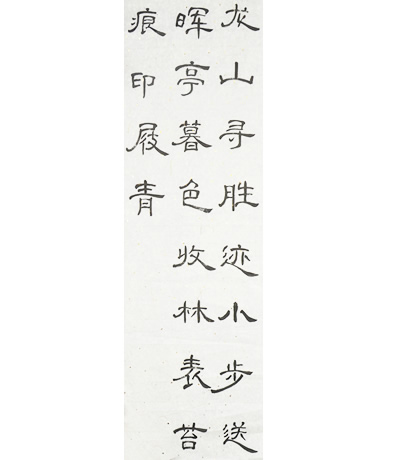 龙山寻胜迹小步送
晖亭暮色收林表苔
痕印屐青